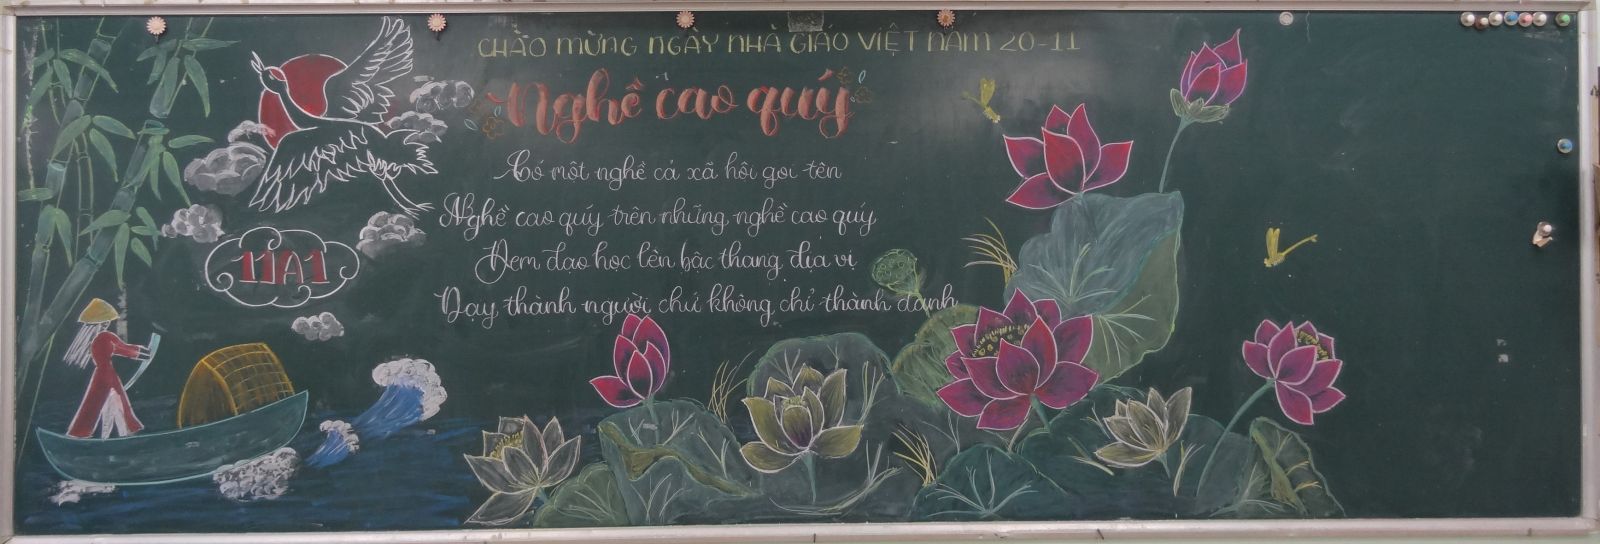 CHÀO MỪNG NGÀY NHÀ GIÁO VIỆT NAM 20-11
Nghề cao quý
Có một nghề cả xã hội gọi tên
Nghề cao quý trên những nghề cao quý
Đem đạo học lên bậc thang địa vị
Dạy thành người chứ không chỉ thành danh
11A1